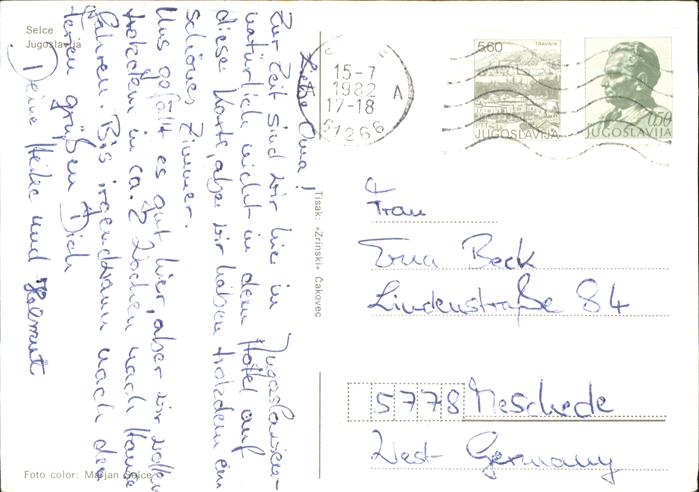 Selce
Jugoslavija
Liebe Oma!
Zur Zeit sind wir hier in Jugoslawien
natürlich nicht in dem Hotel auf
dieser Karte, aber wir haben trotzdem ein
schönes Zimmer.
Uns gefällt es gut hier, aber wir wollen
trotzdem in ca. 2 Wochen nach Hause
fahren. Bis irgendwann nach den
Ferien grüßen Dich
Deine Heike und Helmut
Foto color: Marjan Selce
Tisak: »Zrinski« Čakovec
15-7
1982
17-18
A
A
51266
5.60
TRAVNIK
JUGOSLAVIJA
0.50
JUGOSLAVIJA
Frau
Erna Beck
Lindenstraße 84
5778 Meschede
West-Germany